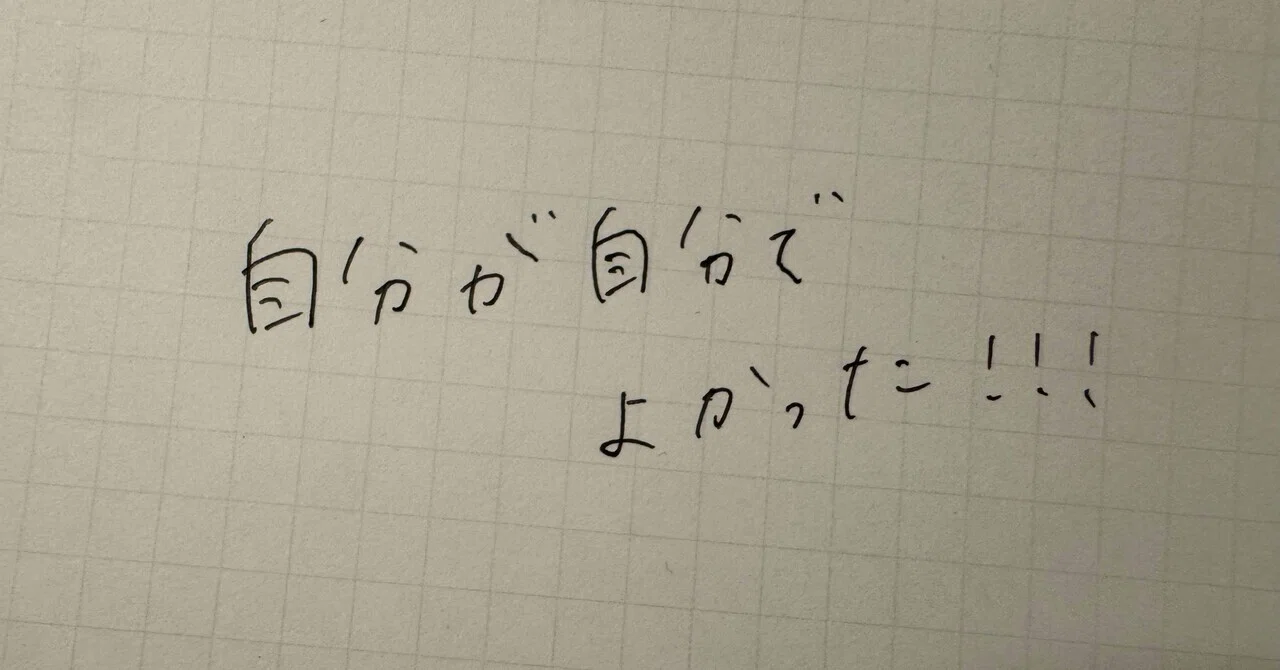 自分が自分で
よかった!!!